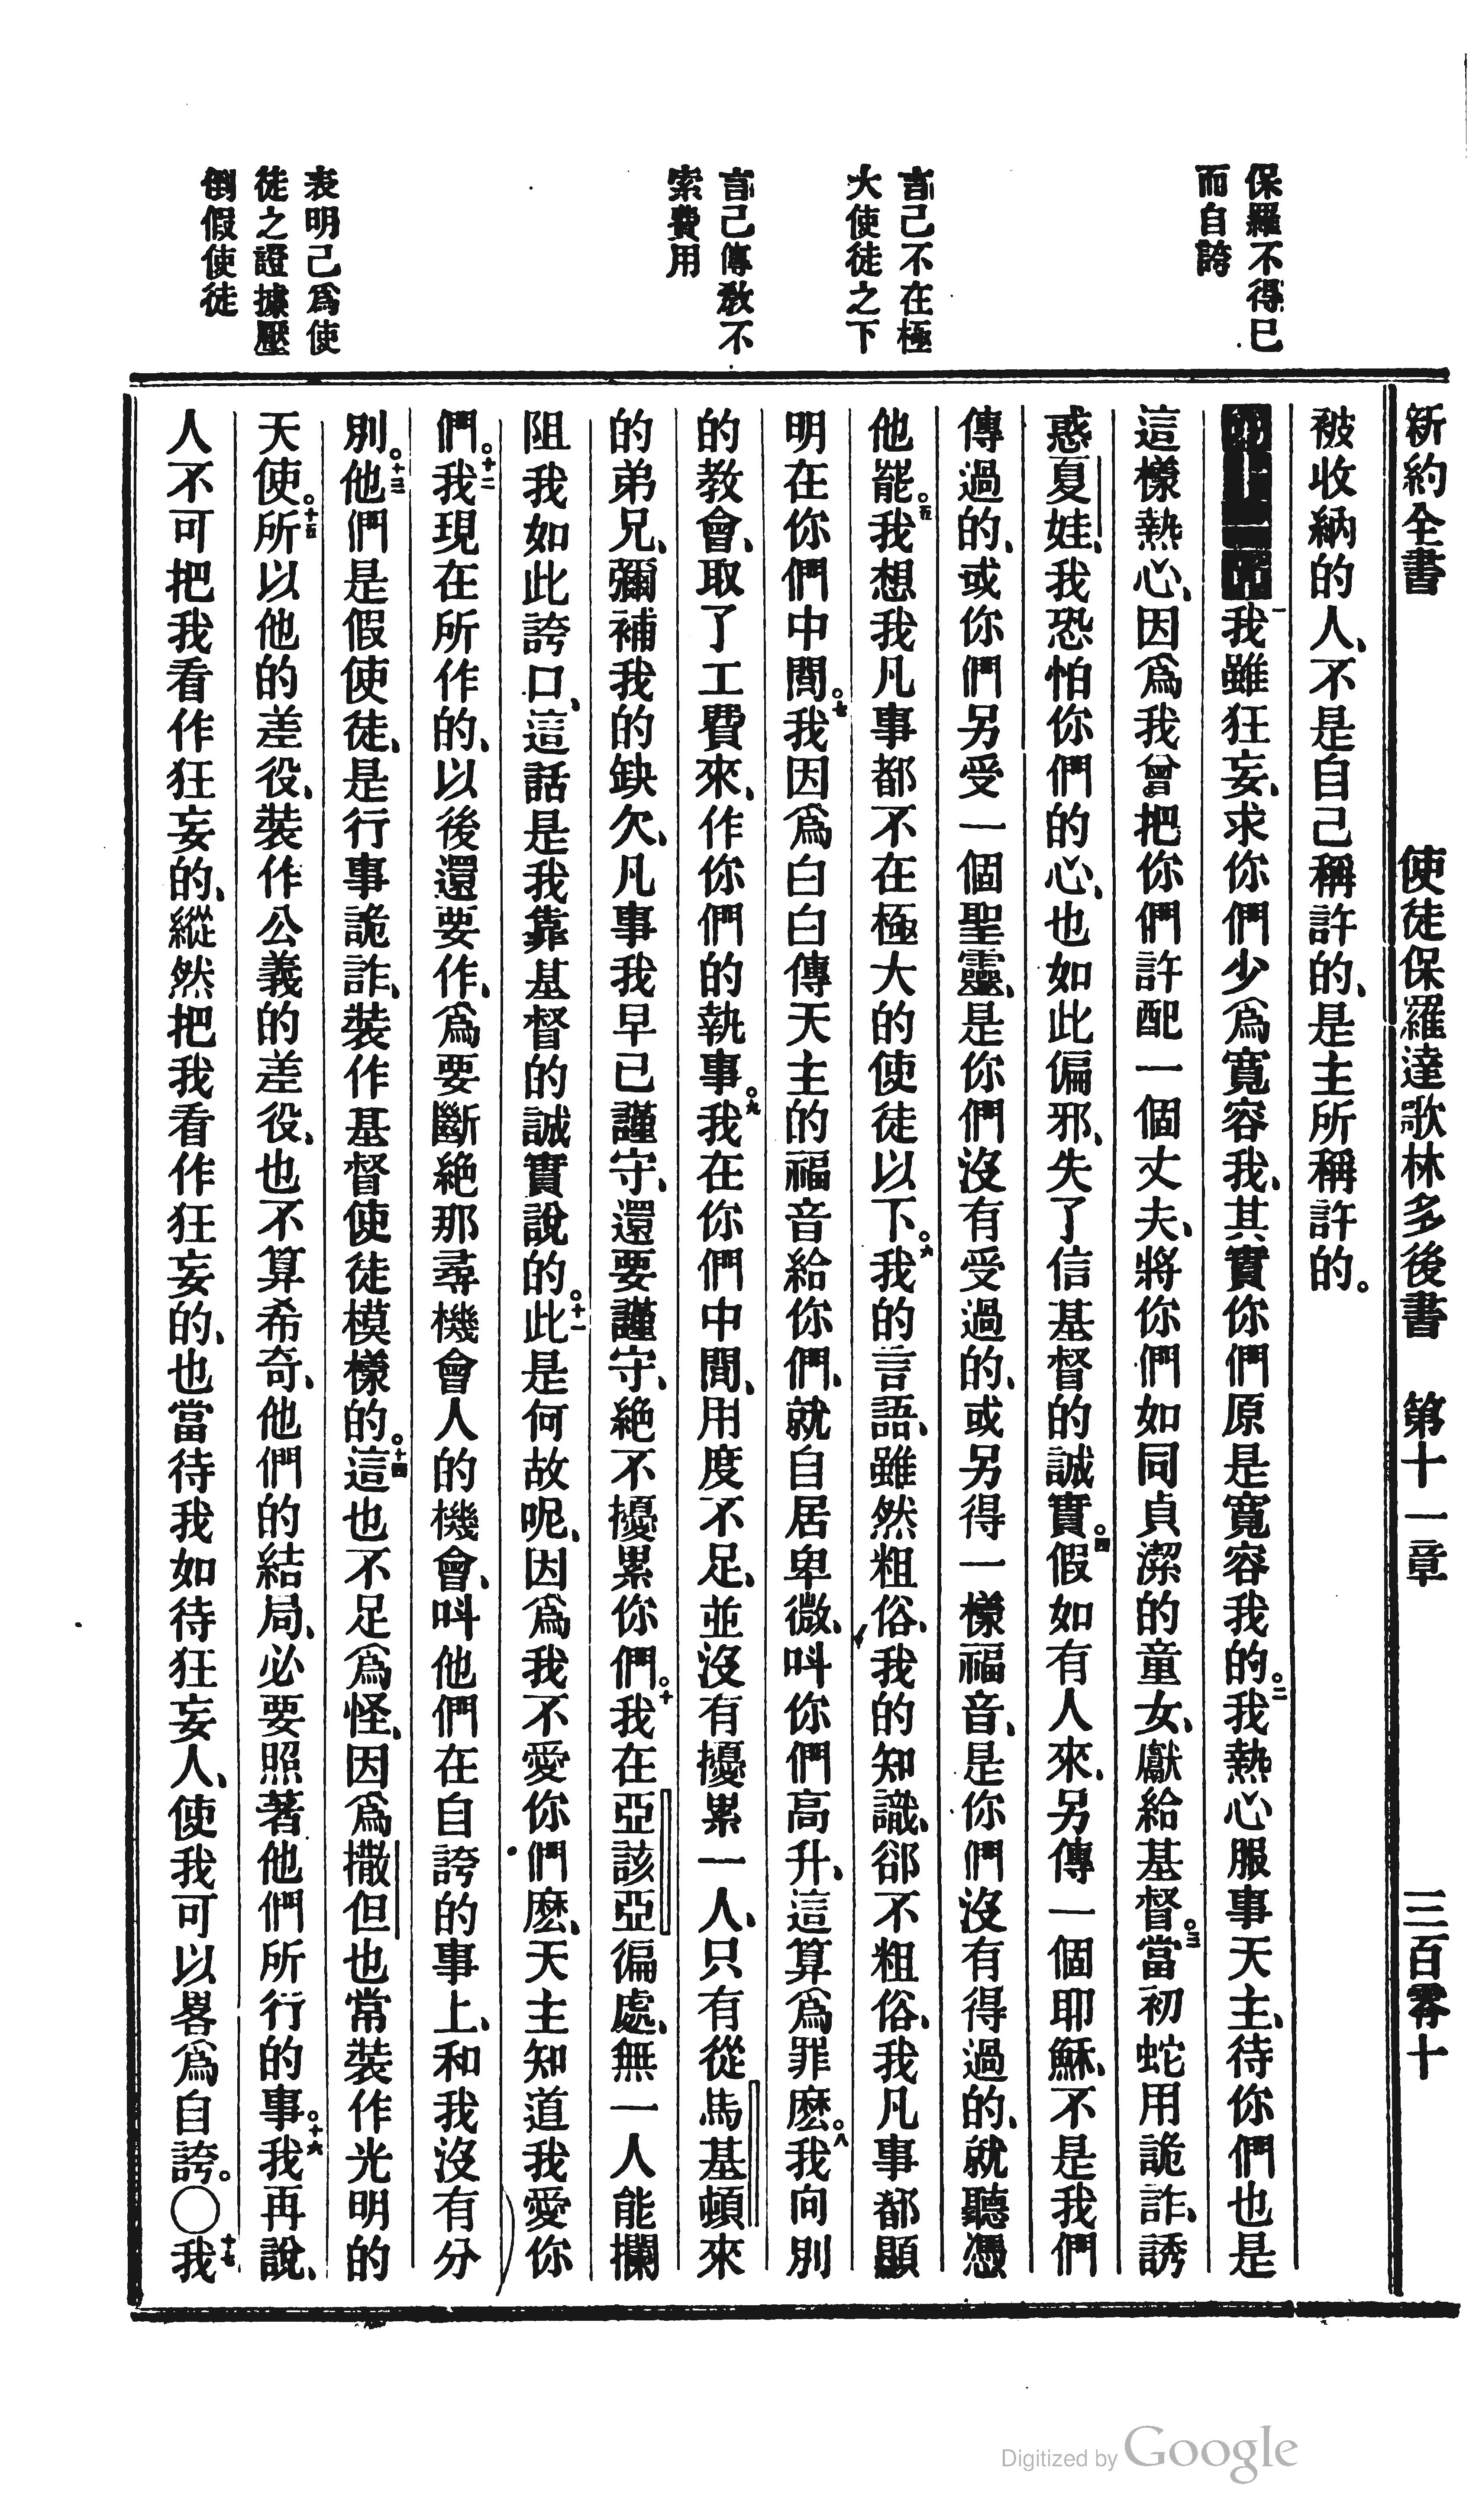 保羅不得已
而自誇
言己不在極
大使徒之下
言己傳教不
索費用
表明己爲使
徒之證據壓
倒假使徒
新約全書 使徒保羅達歌林多後書 第十一章 三百零十
被收納的人、不是自己稱許的、是主所稱許的。
一我雖狂妄、求你們少爲寬容我、其實你們原是寬容我的。二我熱心服事天主、待你們也是
這樣熱心、因爲我曾把你們許配一個丈夫、將你們如同貞潔的童女、獻給基督。三當初蛇用詭詐、誘
惑夏娃、我恐怕你們的心、也如此偏邪、失了信基督的誠實。四假如有人來、另傳一個耶穌、不是我們
傳過的、或你們另受一個聖靈、是你們沒有受過的、或另得一樣福音、是你們沒有得過的、就聽憑
他罷。五我想我凡事都不在極大的使徒以下。六我的言語、雖然粗俗、我的知識、郤不粗俗、我凡事都顯
明在你們中間。七我因爲白白傳天主的福音給你們、就自居卑微、呌你們高升、這算爲罪麽。八我向別
的教會、取了工費來、作你們的執事。九我在你們中間、用度不足、並沒有擾累一人、只有從馬基頓來
的弟兄、彌補我的缺欠、凡事我早已謹守、還要謹守、絕不擾累你們。十我在亞該亞徧處、無一人能攔
阻我如此誇口、這話是我靠基督的誠實說的。十一此是何故呢、因爲我不愛你們麽、天主知道我愛你
們。十二我現在所作的、以後還要作、爲要斷絕那尋機會人的機會、呌他們在自誇的事上、和我沒有分
別。十三他們是假使徒、是行事詭詐、裝作基督使徒模樣的。十四這也不足爲怪、因爲撒但也常裝作光明的
天使。十五所以他的差役、裝作公義的差役、也不算希奇、他們的結局、必要照著他們所行的事。十六我再說、
人不可把我看作狂妄的、縱然把我看作狂妄的、也當待我如待狂妄人、使我可以畧爲自誇。〇十七我
Digitized by Google